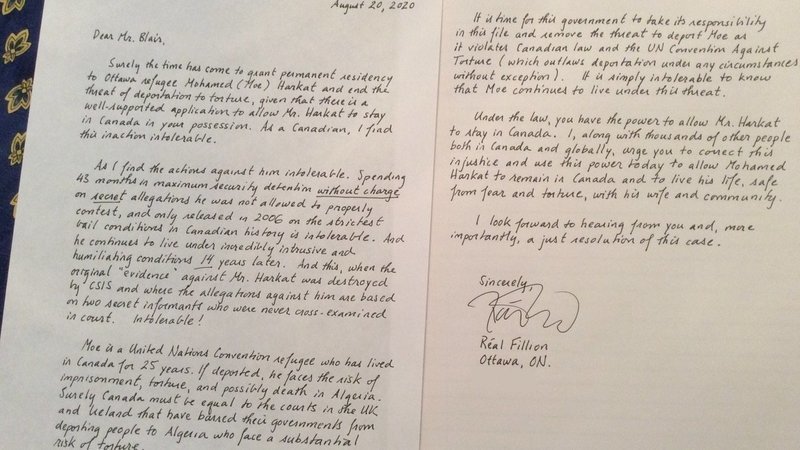 August 20, 2020
Dear Mr. Blair,
Surely the time has come to grant permanent residency
to Ottawa refugee Mohamed (Moe) Harkat and end the
threat of deportation to torture, given that there is a
well-supported application to allow Mr. Harkat to stay
in Canada in your possession. As a Canadian, I find
this inaction intolerable.
As I find the actions against him intolerable. Spending
43 months in maximum security detention without charge
on secret allegations he was not allowed to properly
contest, and only released in 2006 on the strictest
bail conditions in Canadian history is intolerable. And
he continues to live under incredibly intrusive and
humiliating conditions 14 years later. And this, when the
original "evidence" against Mr. Harkat was destroyed
by CSIS and where the allegations against him are based
on two secret informants who were never cross-examined
in court. Intolerable!
Moe is a United Nations Convention refugee who has lived
in Canada for 25 years. If deported, he faces the risk of
imprisonment, torture, and possibly death in Algeria.
Surely Canada must be equal to the courts in the UK
and Ireland that have barred their governments from
deporting people to Algeria who face a substantial
risk of torture.
It is time for this government to take its responsibility
in this file and remove the threat to deport Moe as
it violates Canadian law and the UN Convention Against
Torture (which outlaws deportation under any circumstances
without exception). It is simply intolerable to know
that Moe continues to live under this threat.
Under the law, you have the power to allow Mr. Harkat
to stay in Canada. I, along with thousands of other people
both in Canada and globally, urge you to correct this
injustice and use this power today to allow Mohamed
Harkat to remain in Canada and to live his life, safe
from fear and torture, with his wife and community.
I look forward to hearing from you and, more
importantly, a just resolution of this case.
Sincerely,
Réal Fillion
Ottawa, ON.